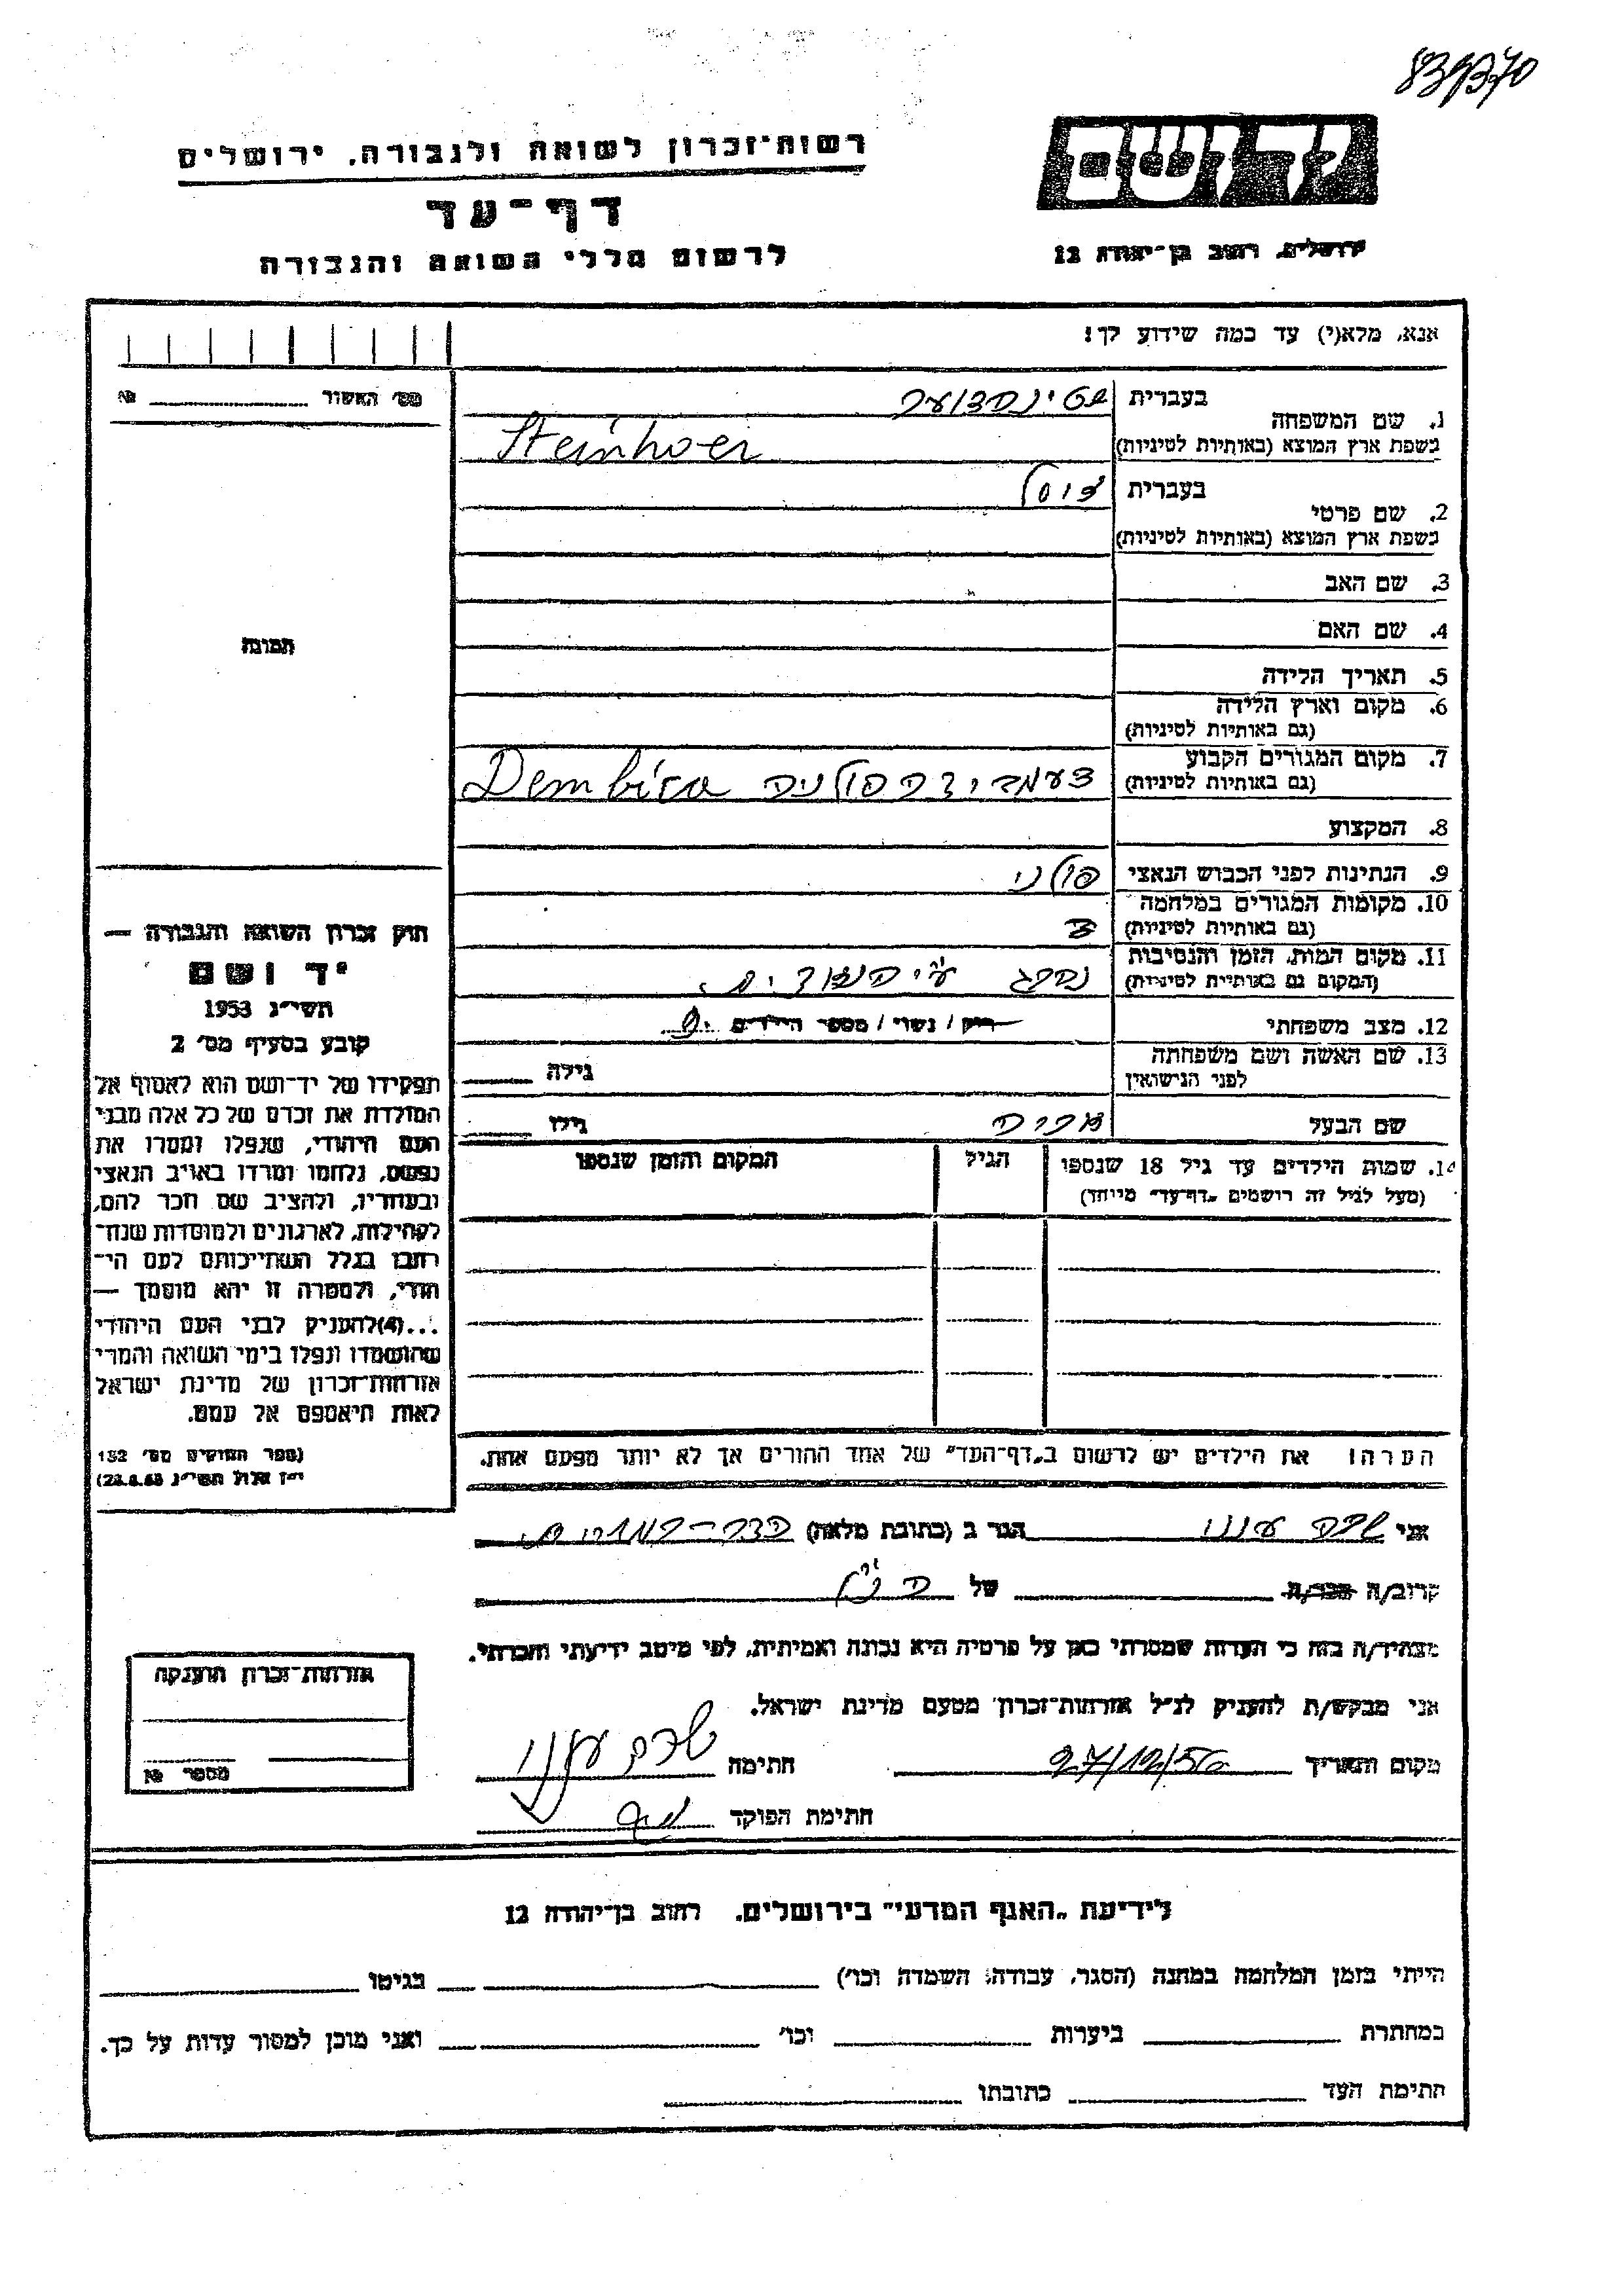 839370
רשות־זכרון לשואה ולגבורה, ירושלים
דף־עד
לרשום חללי השואה והגבורה
יד ושם
ירושלים, רחוב בן־יהודה 12
אנא, מלא(י) עד כמה שידוע לך!
מס׳ האשור № 
1. שם המשפחה
בעברית
בשפת ארץ המוצא (באותיות לטיניות) Steinhoer
2. שם פרטי
בעברית
בשפת ארץ המוצא (באותיות לטיניות)
3. שם האב
4. שם האם
תמונה
5. תאריך הלידה
6. מקום וארץ הלידה
(גם באותיות לטיניות)
7. מקום המגורים הקבוע
(גם באותיות לטיניות) פולניה Dembica
8. המקצוע
9. הנתינות לפני הכבוש הנאצי פולני
10. מקומות המגורים במלחמה
(גם באותיות לטיניות)
11. מקום המות, הזמן והנסיבות
(המקום גם באותיות לטיניות) נהרג ע״י הנאצים.
12. מצב משפחתי רוק / נשוי / מספר הילדים
13. שם האשה ושם משפחתה
לפני הנישואין
גילה
שם הבעל
גילו
14. שמות הילדים עד גיל 18 שנספו
(מעל לגיל זה רושמים „דף־עד״ מיוחד)
הגיל
המקום והזמן שנספו
חוק זכרון השואה והגבורה —
יד ושם
תשי״ג 1953
קובע בסעיף מס׳ 2
תפקידו של יד־ושם הוא לאסוף אל
המולדת את זכרם של כל אלה מבני
העם היהודי, שנפלו ומסרו את
נפשם, נלחמו ומרדו באויב הנאצי
ובעוזריו, ולהציב שם וזכר להם,
לקהילות, לארגונים ולמוסדות שנח־
רבו בגלל השתייכותם לעם הי־
הודי, ולמטרה זו יהא מוסמך —
...(4)להעניק לבני העם היהודי
שהושמדו ונפלו בימי השואה והמרי
אזרחות־זכרון של מדינת ישראל
לאות היאספם אל עמם.
(ספר החוקים מס׳ 132
י״ז אלול תשי״ג 28.8.53)
הערה! את הילדים יש לרשום ב„דף־העד״ של אחד ההורים אך לא יותר מפעם אחת.
אני שרה ענני הגר ב (כתובת מלאה)
קרוב/ה חבר/ה של הנ״ל
מצהיר/ה בזה כי העדות שמסרתי כאן על פרטיה היא נכונה ואמיתית, לפי מיטב ידיעתי והכרתי.
אני מבקש/ת להעניק לנ״ל אזרחות־זכרון מטעם מדינת ישראל.
מקום ותאריך 27/12/56 חתימה שרה ענני
חתימת הפוקד
אזרחות־זכרון הוענקה
מספר №
לידיעת „האגף המדעי״ בירושלים. רחוב בן־יהודה 12
הייתי בזמן המלחמה במחנה (הסגר, עבודה, השמדה וכו׳) בגיטו
במחתרת ביערות וכו׳ ואני מוכן למסור עדות על כך.
חתימת העד כתובתו